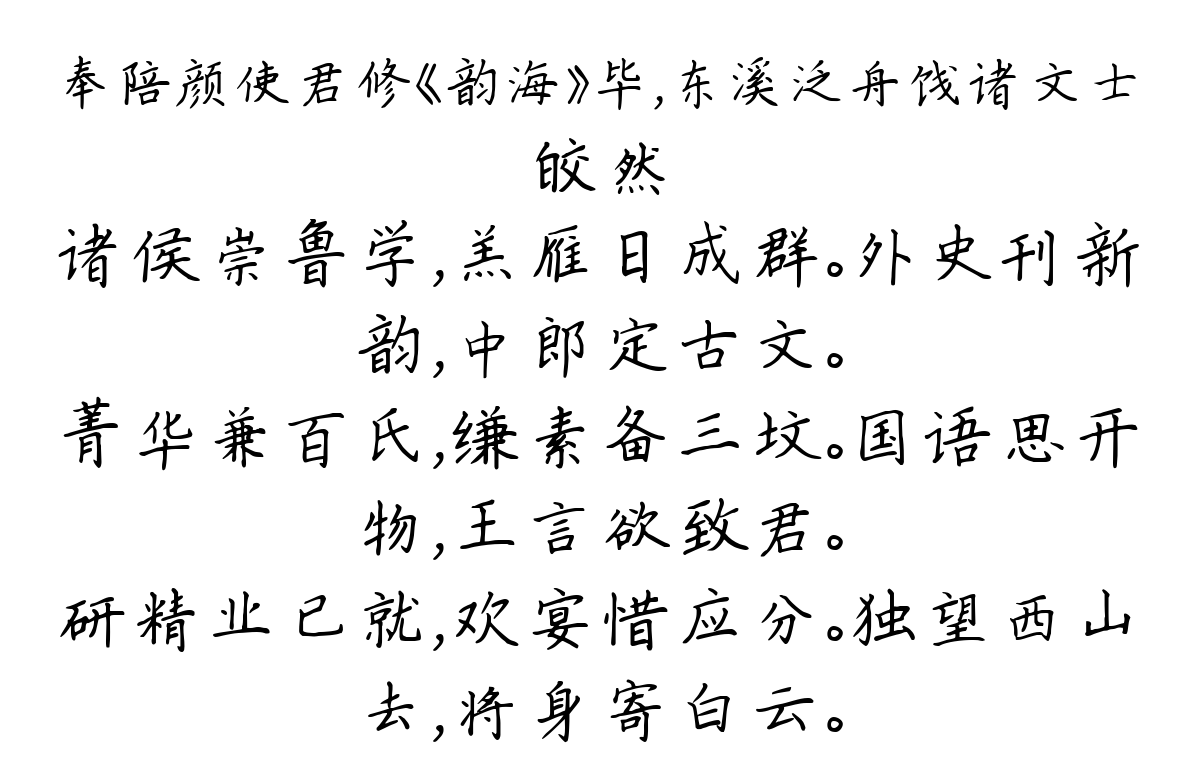 奉陪颜使君修《韵海》毕,东溪泛舟饯诸文士
皎然
诸侯崇鲁学,羔雁日成群。外史刊新
韵,中郎定古文。
菁华兼百氏,缣素备三坟。国语思开
物,王言欲致君。
研精业已就,欢宴惜应分。独望西山
去,将身寄白云。